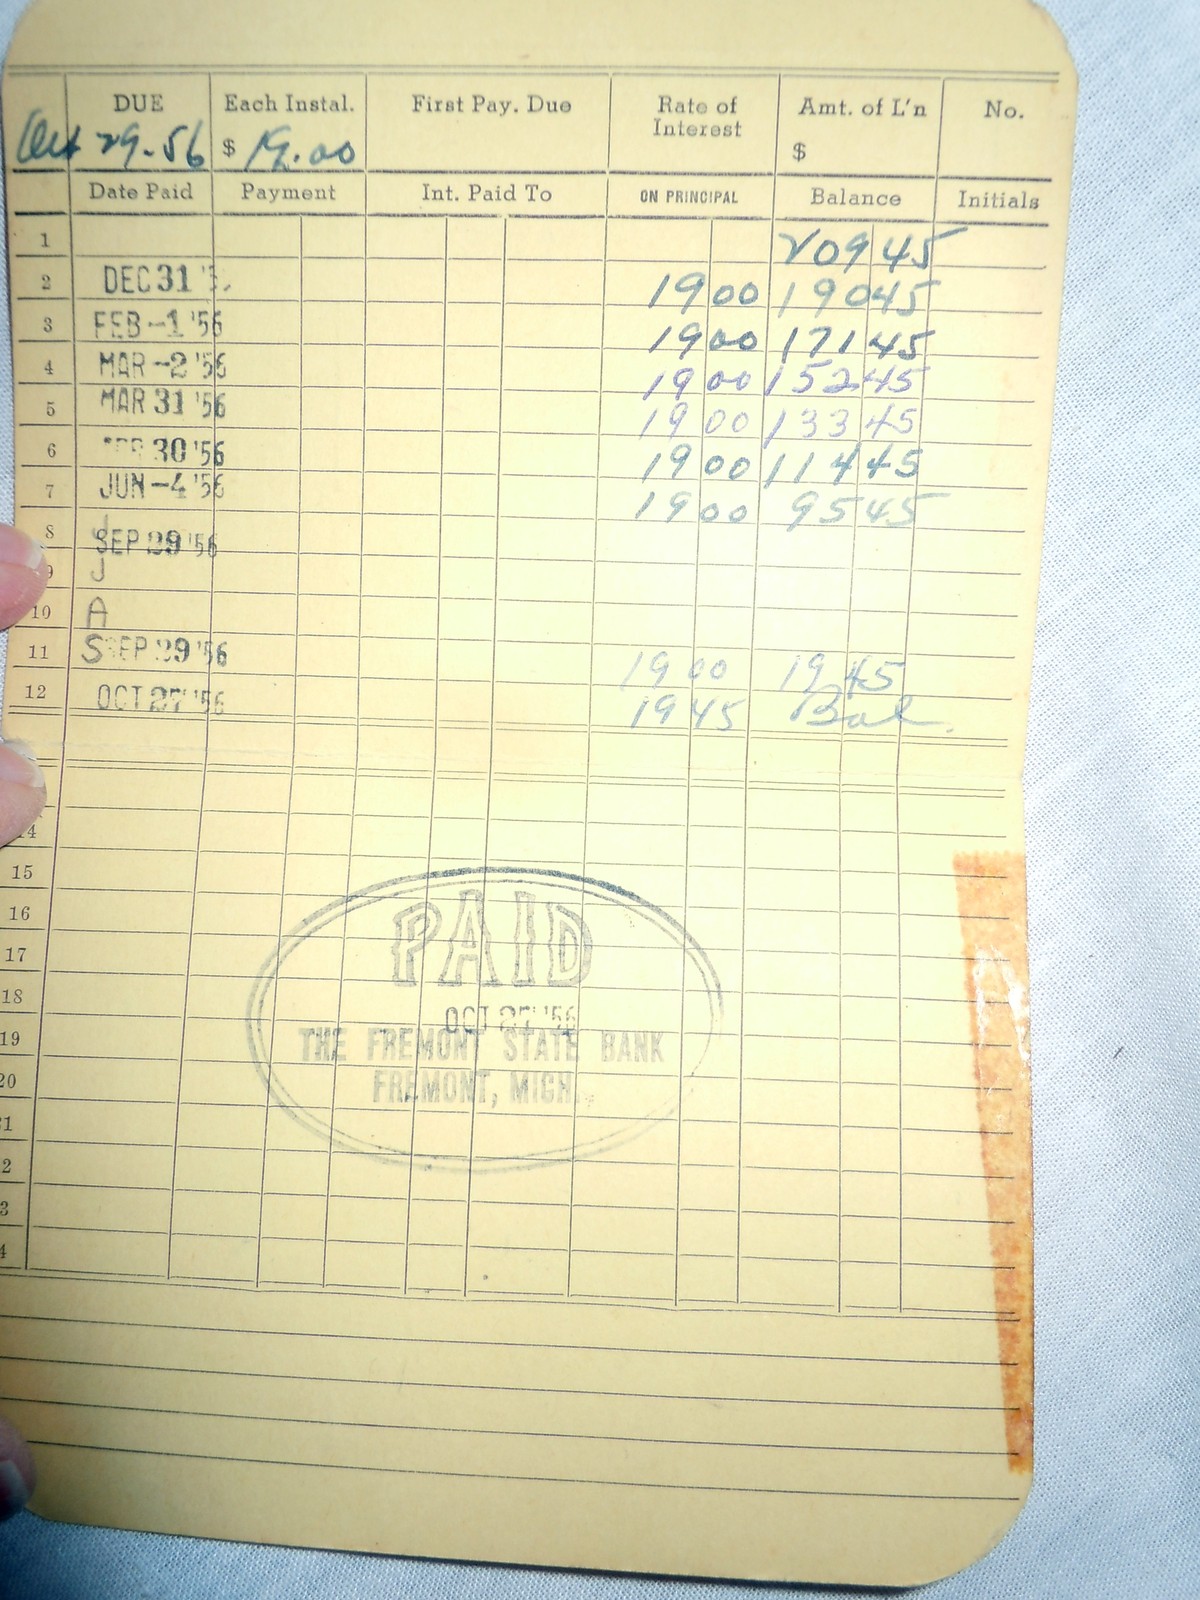 DUE Each Instal. First Pay. Due Rate of Interest Amt. of L'n No.
Oct 29-56 $ 19.00 $
Date Paid Payment Int. Paid To ON PRINCIPAL Balance Initials
1 209 45
2 DEC 31 19 00 190 45
3 FEB -1 '56 19 00 171 45
4 MAR -2 '56 19 00 152 45
5 MAR 31 '56 19 00 133 45
6 30 '56 19 00 114 45
7 JUN -4 '56 19 00 95 45
8 SEP 29 '56
9 J
10 A
11 S SEP 29 '56 19 00 19 45
12 OCT 27 '56 19 45 Bal.
14
15
16 PAID
17
18 OCT 27 '56
19 THE FREMONT STATE BANK
20 FREMONT, MICH.
1
2
3
4